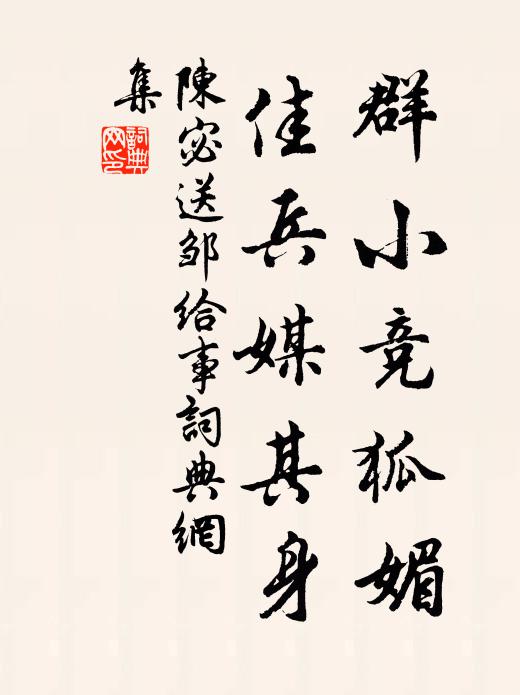 群小竞狐媚
佳兵媒其身
陳宓送邹给事詞典網
集
詞典网印